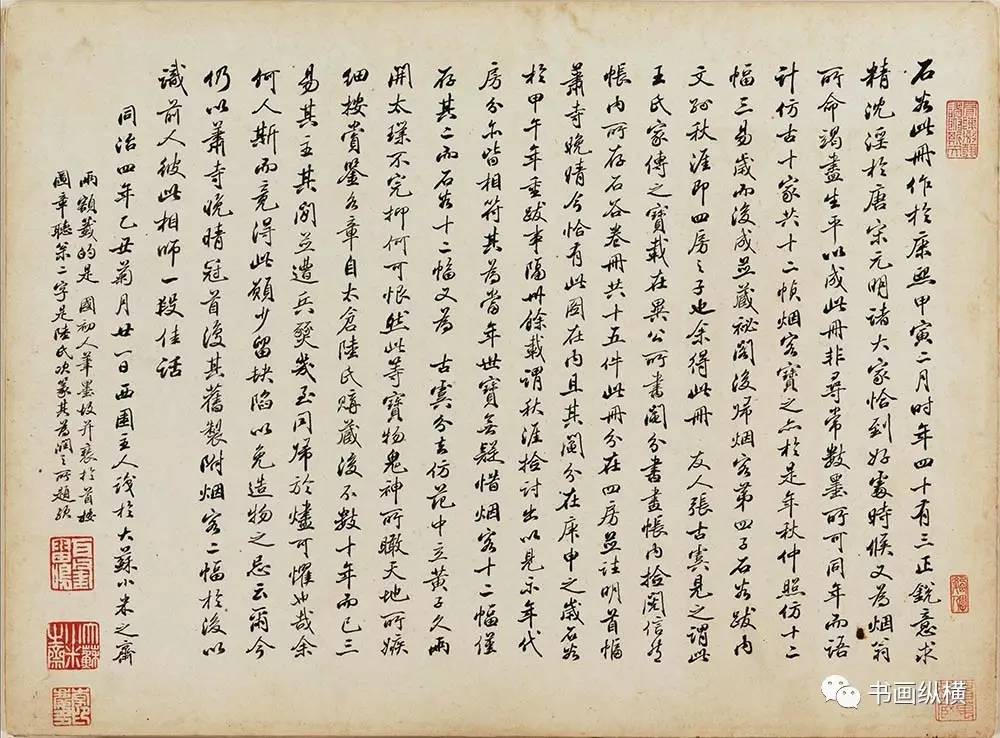 石谷此冊作於康熙甲寅二月時年四十有三正銳意求
精沈淫於唐宋元明諸大家恰到好處時候又為烟翁
所命竭盡生平以成此冊非尋常數墨所可同年而語
計仿古十家共十二幀烟客寶之亦於是年秋仲照仿十二
幅三易歲而後成並藏祕閣後歸烟客第四子石谷跋內
文孫秋涯即四房之子也余得此冊 友人張古霙見之謂此
王氏家傳之寶載在異公所書鬮分書畫帳內拾閱信然
帳內所存石谷卷冊共十五件此冊分在四房並註明首幅
蕭寺晚晴今恰有此圖在內且其鬮分在庚申之歲石谷
於甲午年重跋事隔卅餘載謂秋涯拾討出以見示年代
房分亦皆相符其為當年世寶無疑惜烟客十二幅僅
存其二而石谷十二幅又為 古霙分去仿范中立黃子久兩
開太璞不完抑何可恨然此等寶物鬼神所瞰天地所嫉
細按賞鑒各章自太倉陸氏購藏後不數十年而已三
易其主其間並遭兵燹幾至同歸於燼可懼也哉余
何人斯而竟得此願少留缺陷以免造物之忌云爾今
仍以蕭寺晚晴冠首復其舊製附烟客二幅於後以
識前人彼此相師一段佳話
同治四年乙丑菊月廿一日西圃主人識於大蘇小米之齋
兩額籤的是國初人筆墨故并裝於首按
圖章聽箓二字是陸氏次篆其為潤之所題歟
书画纵横